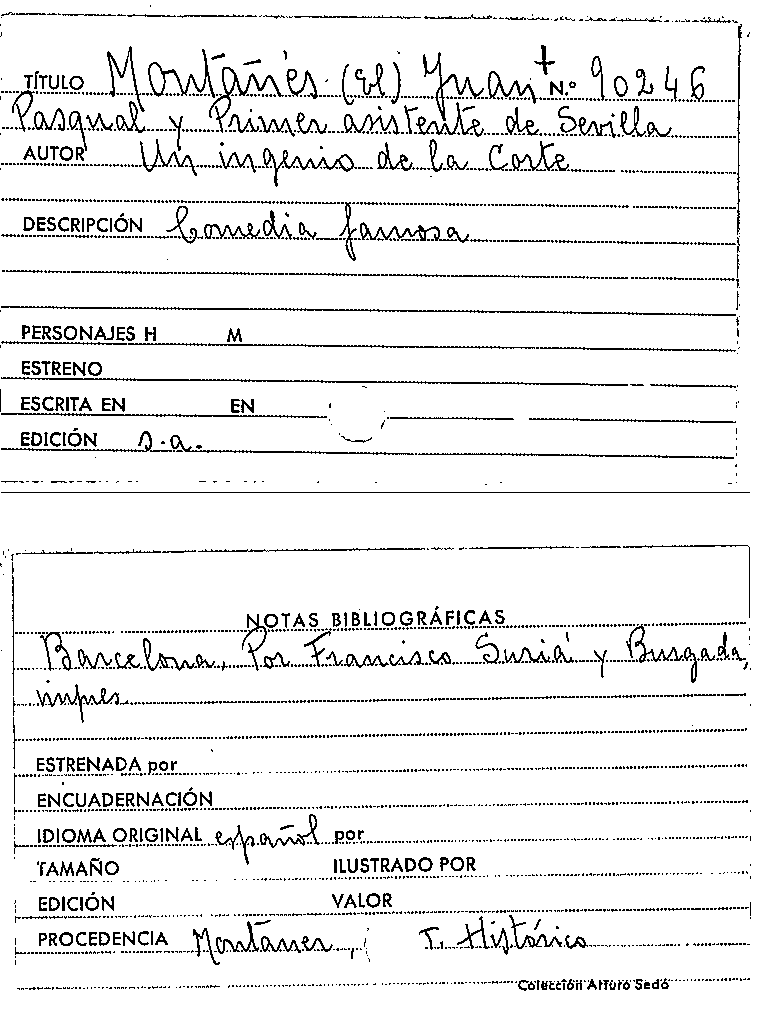 TÍTULO Montañés (El) Juan + N.º 90246
Pasqual y Primer asistente de Sevilla
AUTOR Un ingenio de la Corte
DESCRIPCIÓN Comedia famosa
PERSONAJES H M
ESTRENO
ESCRITA EN EN
EDICIÓN s.a.
NOTAS BIBLIOGRÁFICAS
Barcelona, Por Francisco Suriá y Burgada,
impres.
ESTRENADA por
ENCUADERNACIÓN
IDIOMA ORIGINAL español por
TAMAÑO ILUSTRADO POR
EDICIÓN VALOR
PROCEDENCIA Montaner, T. Histórico
Colección Arturo Sedó